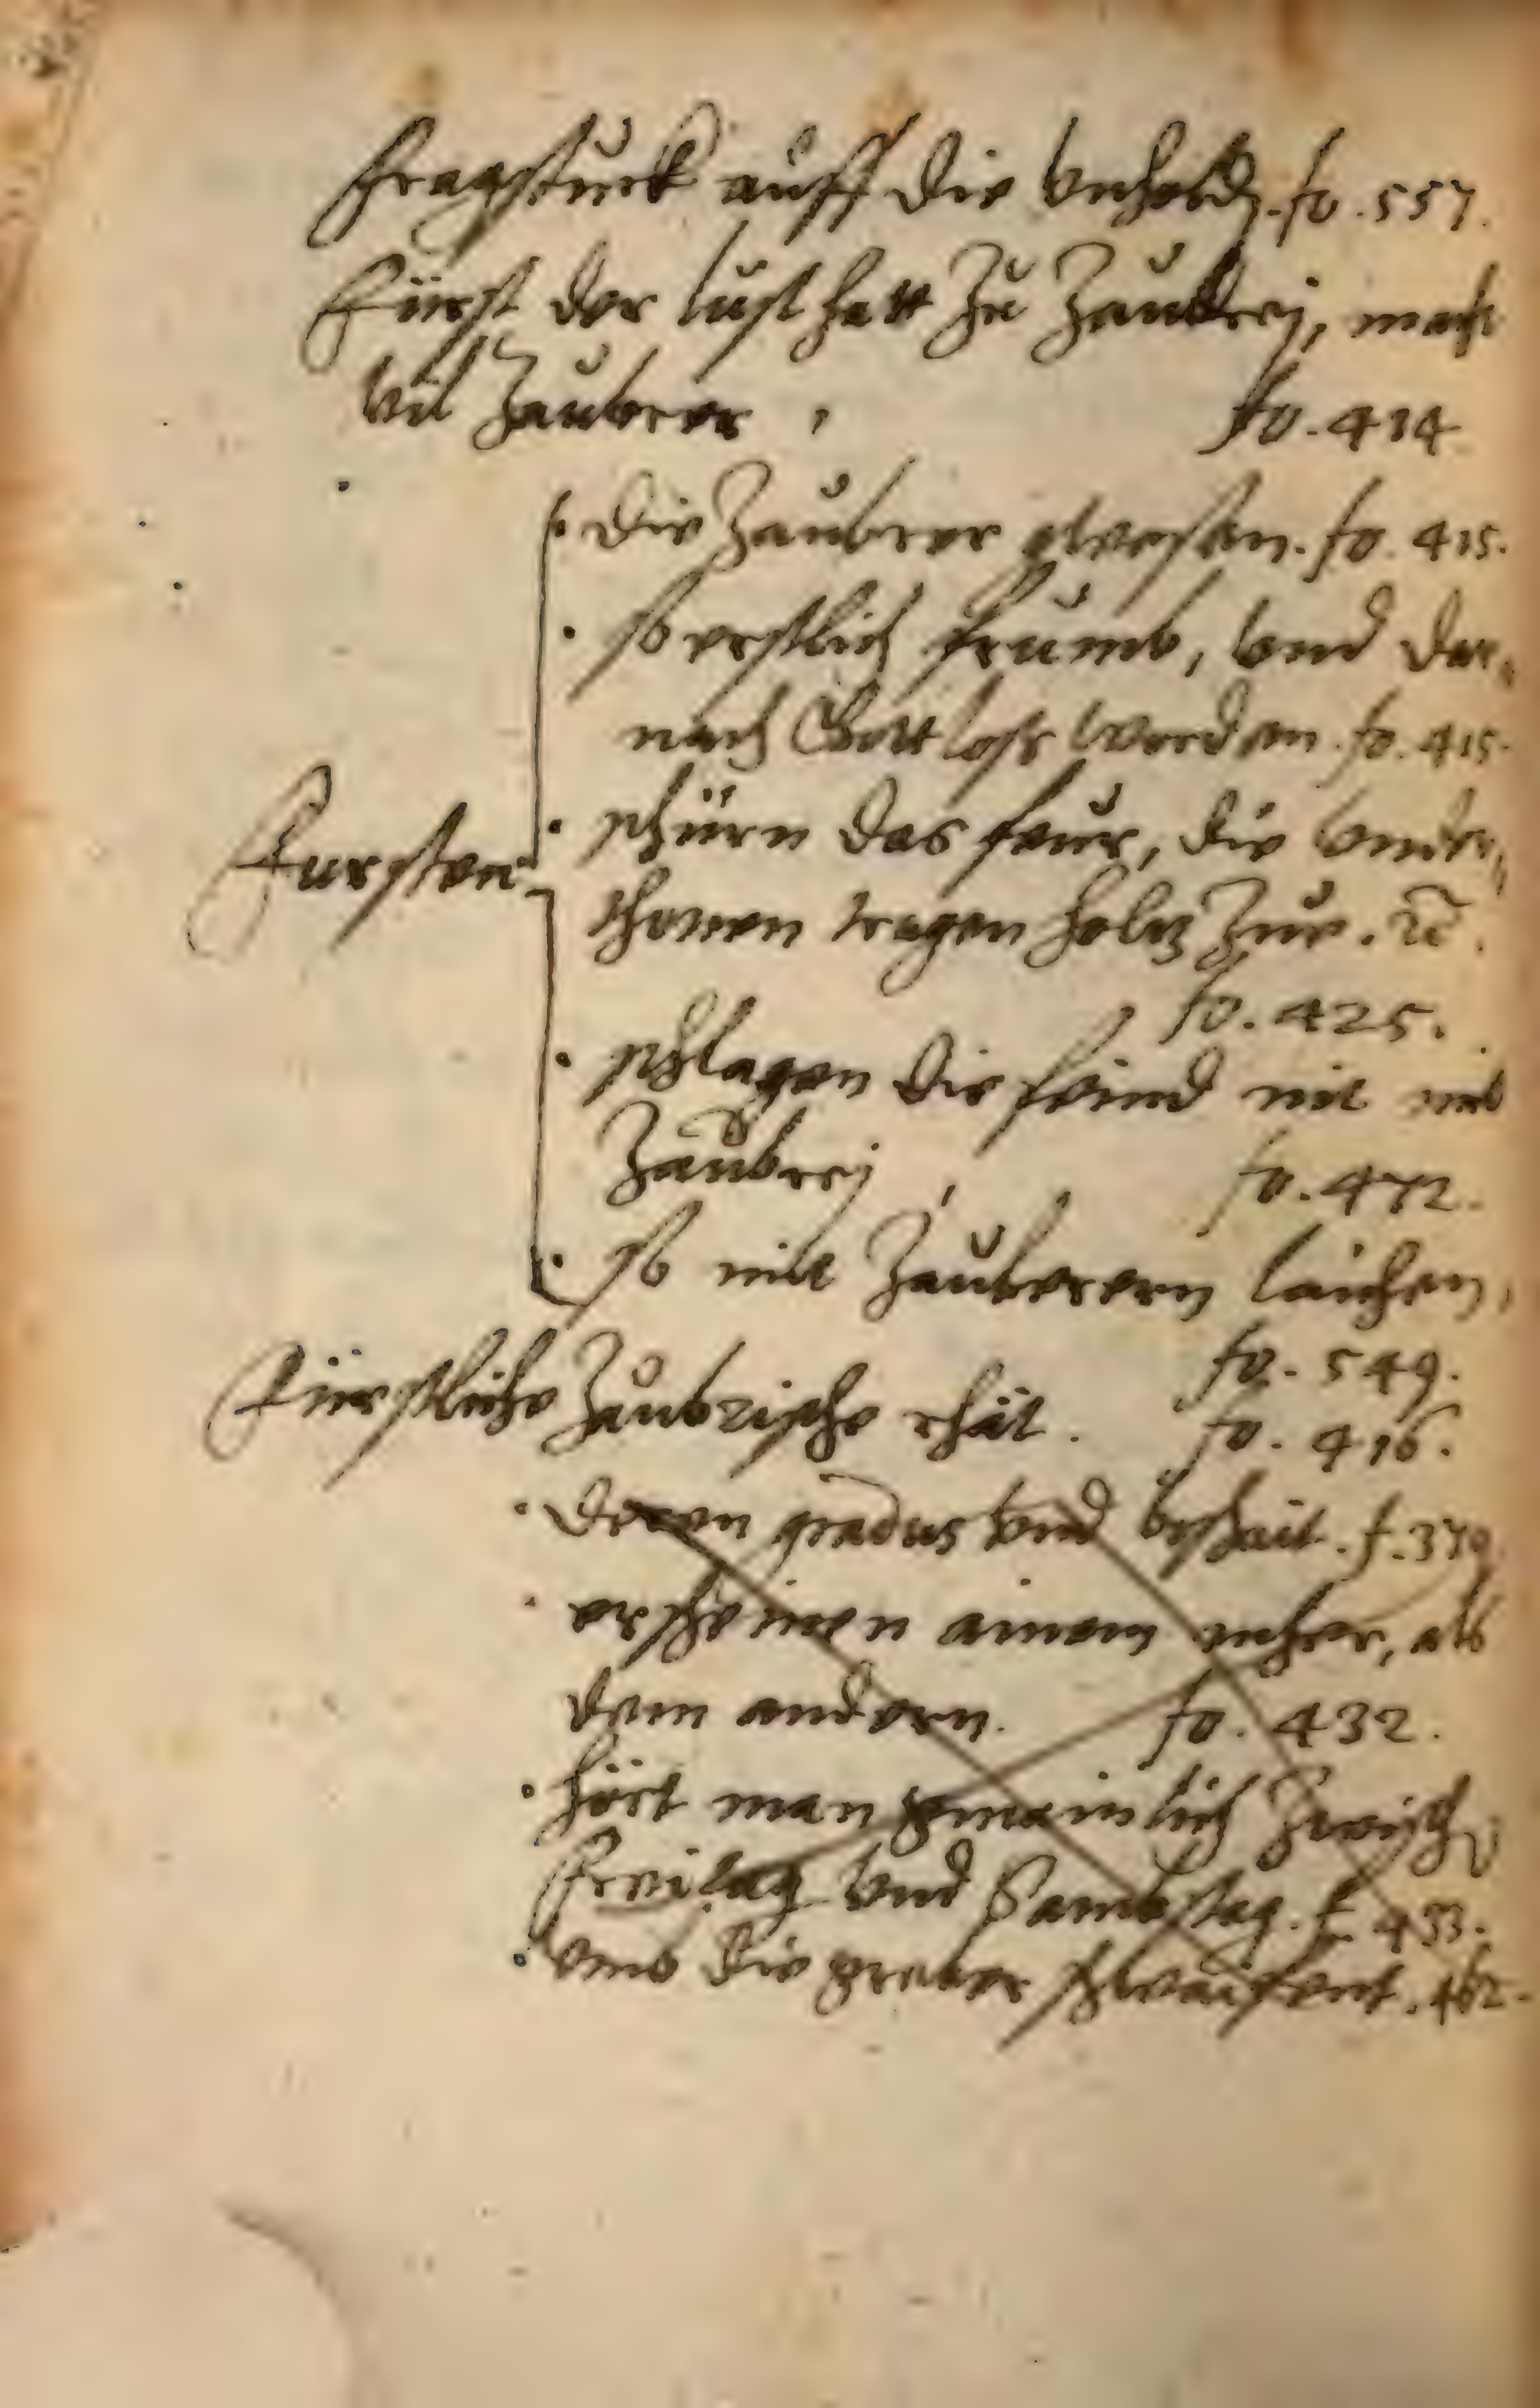 Fragstuck auff die Vnhold. fo. 557.
Fürst der lust hatt zu Zaubrej, macht
vil Zauberer, fo. 414
· die Zauberer gwesen. fo. 415.
· so erstlich frumb, vnd dar,
nach Gottloß worden. fo. 415.
Fursten
· schürn das feur, die vnder,
thonen tragen holtz zue. etc.
fo. 425.
· schlagen die feind nit mit
Zaubrej, fo. 472.
· so mit Zauberern laichen,
fo. 549.
Fürstliche Zaubrische rhät. fo. 416.
· deren gradus vnd beschait. f. 379
· erscheinen ainem mher, als
dem andern. fo. 432.
· hört man gmainlich zwisch
Freitag vnd Sambstag. f. 433.
· vmb die greber schwaifent. 462.